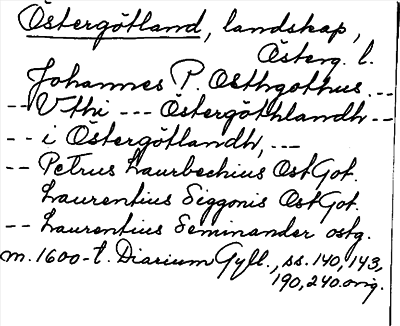 Östergötland, landskap,
Österg. l.
Johannes P. Osthgothus ---
-- Vthi --- Östergöthlandh --
-- i Östergötlandh, ---
-- Petrus Laurbechius OstGot.
Laurentius Siggonis OstGot.
-- Laurentius Seminander ostg.
m. 1600-t. Diarium Gyll., ss. 140, 143,
190, 240. orig.